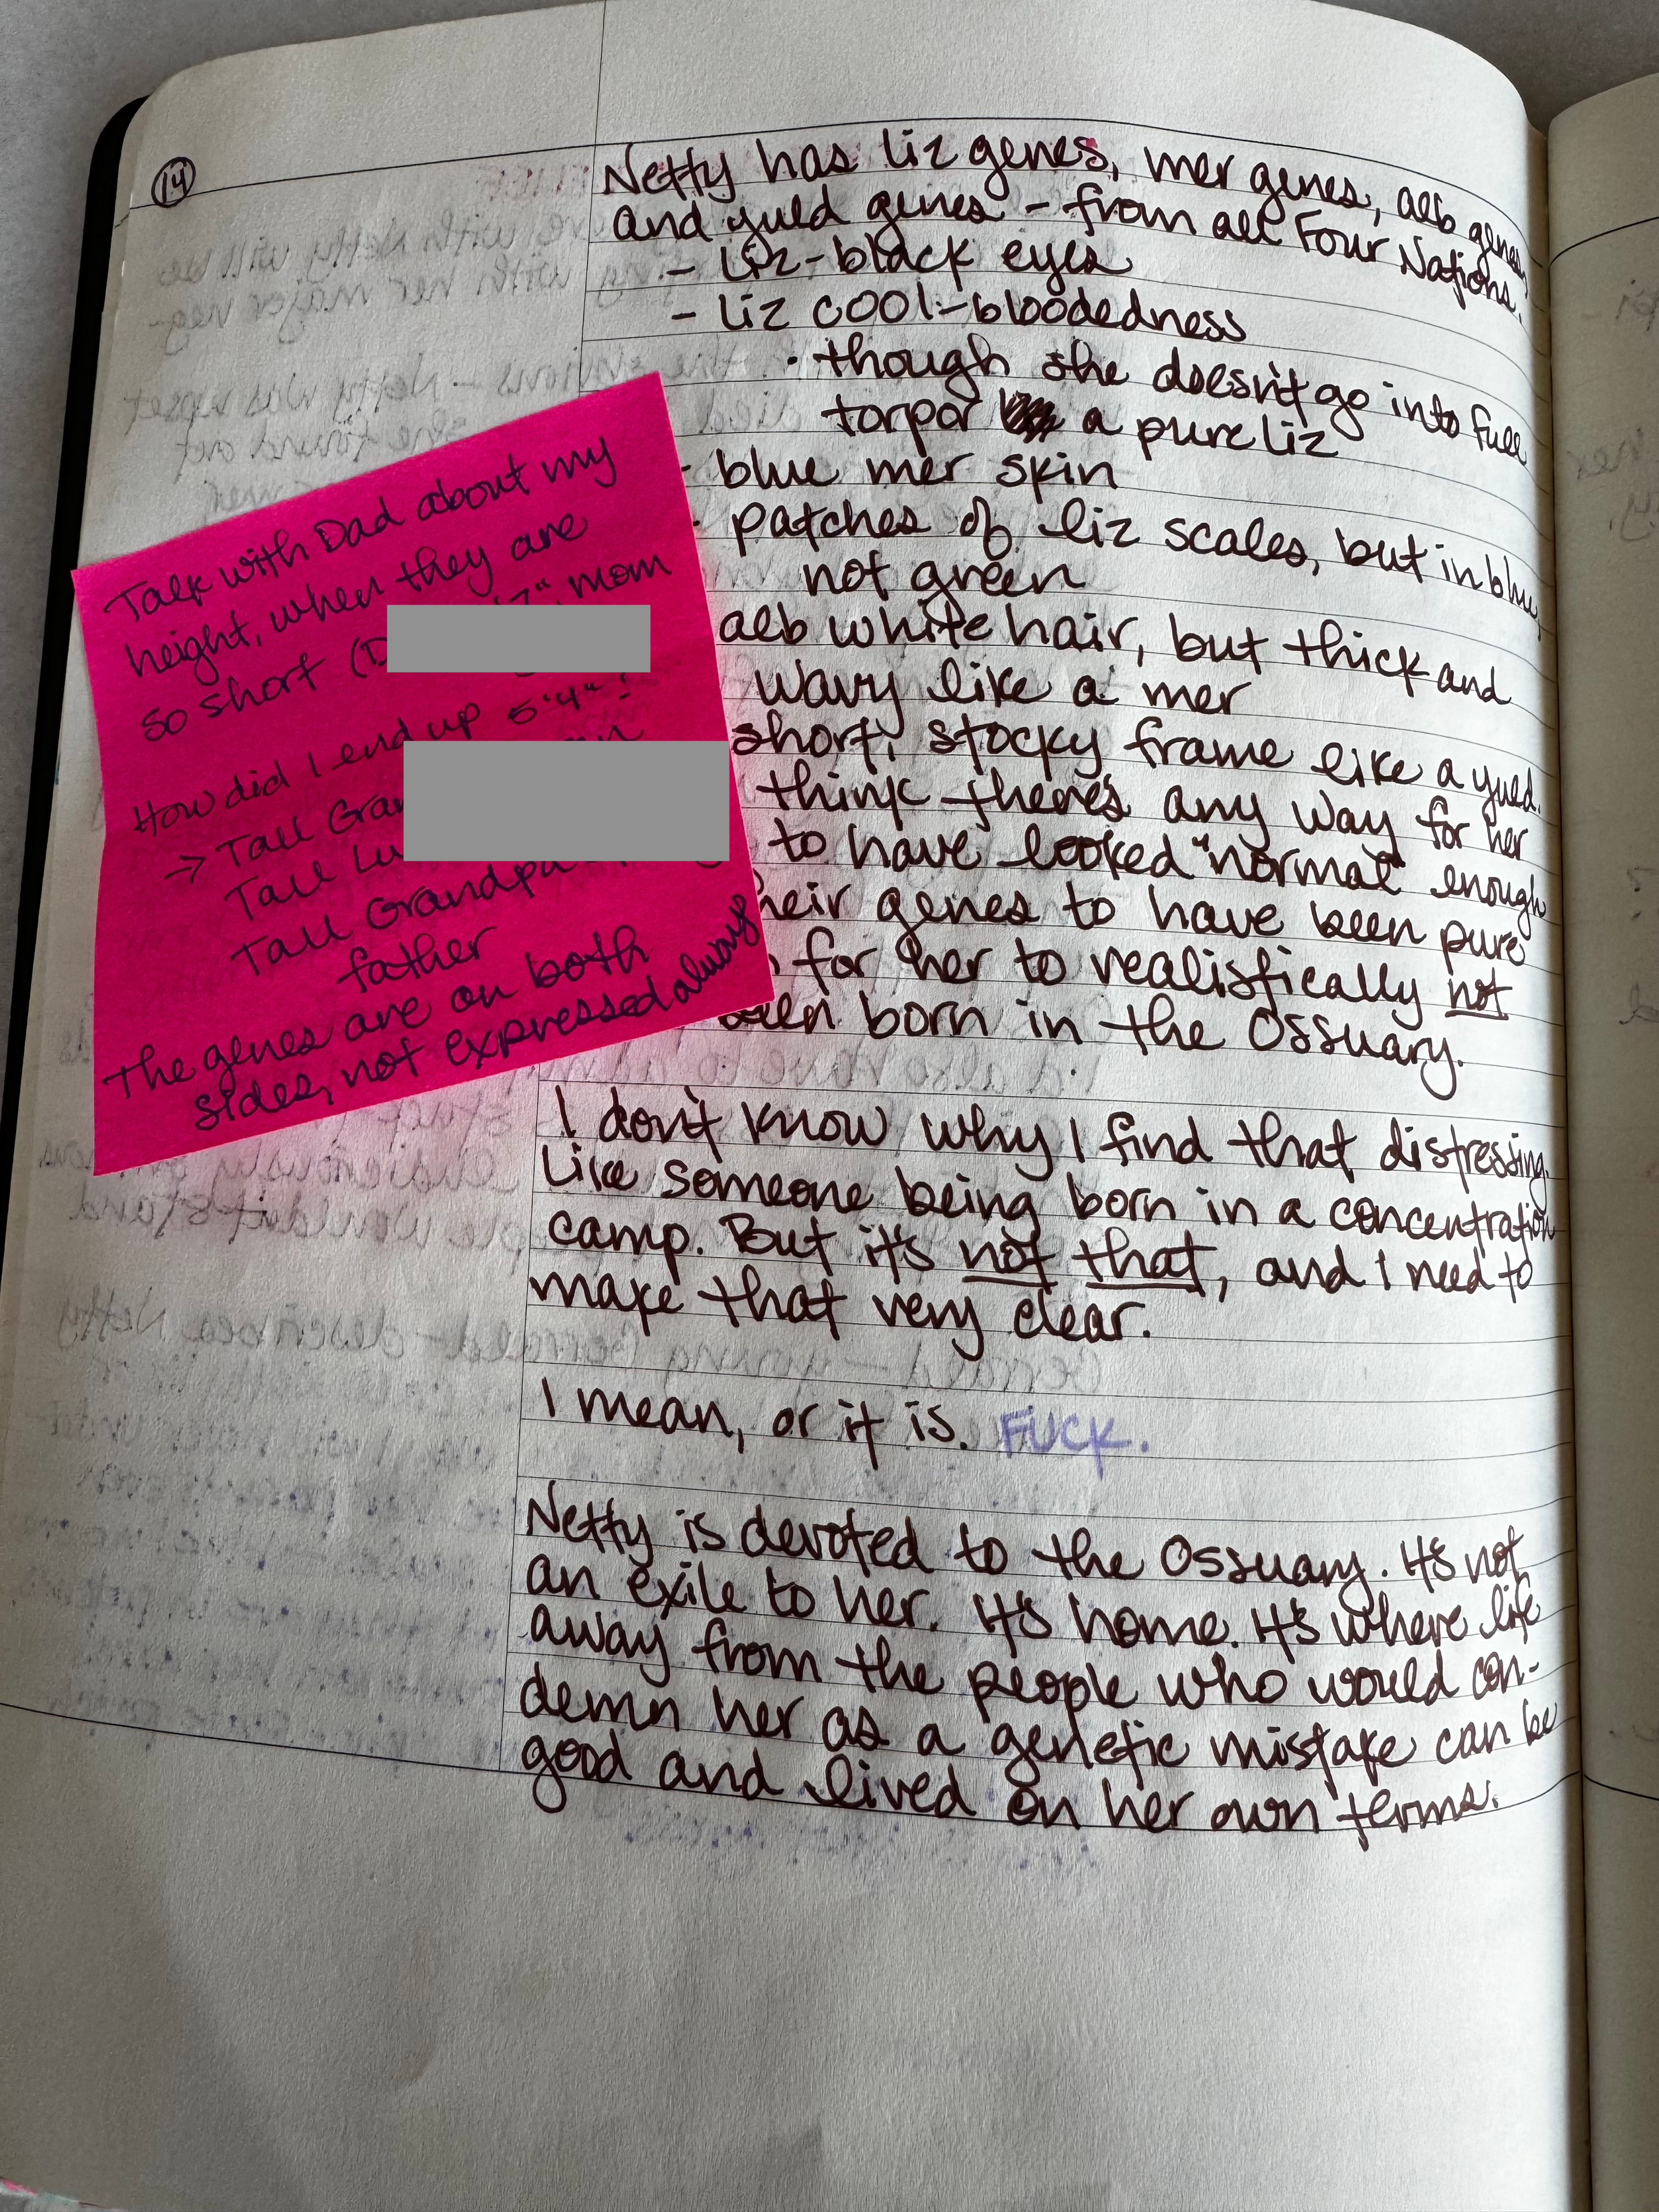 14
Netty has liz genes, mer genes, aeb genes,
and yued genes - from all Four Nations.
- liz-black eyes
- liz cool-bloodedness
· though she doesn't go into full
torpor a pure liz
- blue mer skin
· patches of liz scales, but in blue,
not green
aeb white hair, but thick and
wavy like a mer
short, stocky frame like a yued.
think there's any way for her
to have looked "normal" enough
their genes to have been pure
for her to realistically not
been born in the Ossuary.
I don't know why I find that distressing.
Like someone being born in a concentration
camp. But it's not that, and I need to
make that very clear.
I mean, or it is. FUCK.
Netty is devoted to the Ossuary. It's not
an exile to her. It's home. It's where life
away from the people who would con-
demn her as a genetic mistake can be
good and lived on her own terms.
Talk with Dad about my
height, when they are
so short (D mom
How did I end up 5'4"?
→ Tall Gra
Tall Lu
Tall Grandpa
father
The genes are on both
sides, not expressed always